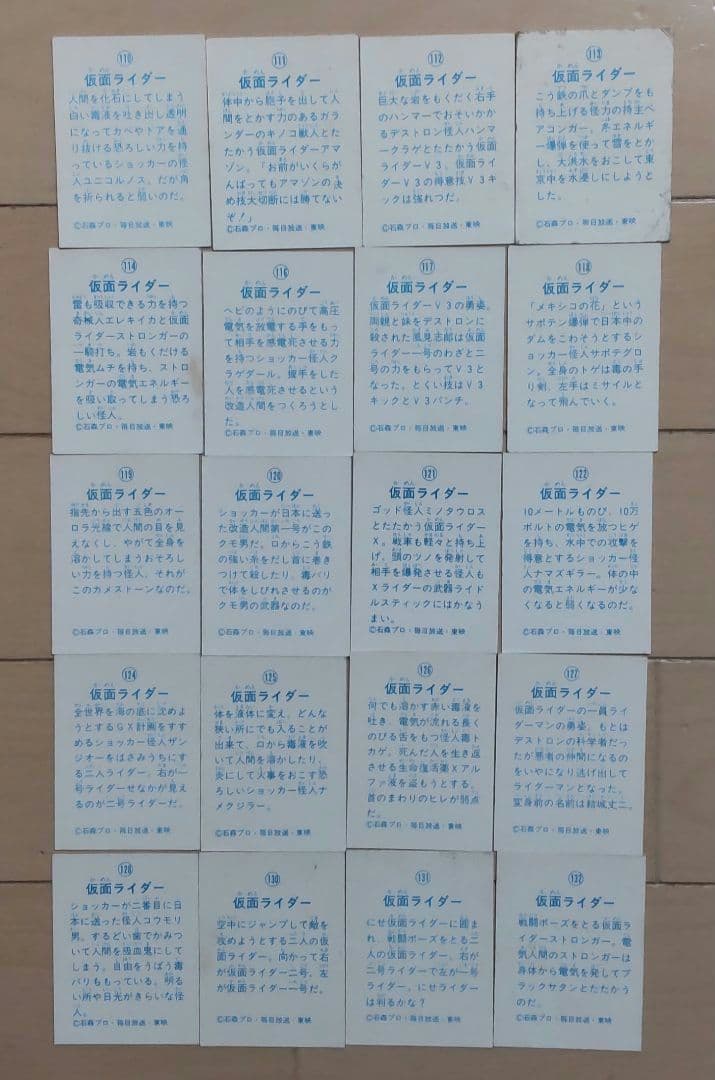 110
仮面ライダー
人間を化石にしてしまう
白い毒液を吐き出し透明
になってカベやドアを通
り抜ける恐ろしい力を持
っているショッカーの怪
人ユニコルノス。だが角
を折られると弱いのだ。
©石森プロ・毎日放送・東映
111
仮面ライダー
体中から胞子を出して人
間をとかす力のあるガラ
ンダーのキノコ獣人とた
たかう仮面ライダーアマ
ゾン。「お前がいくらが
んばってもアマゾンの決
め技大切断には勝てない
ぞ!」
©石森プロ・毎日放送・東映
112
仮面ライダー
巨大な岩をもくだく右手
のハンマーでおそいかか
るデストロン怪人ハンマ
ークラゲとたたかう仮面
ライダーV3。仮面ライ
ダーV3の得意技V3キ
ックは強れつだ。
©石森プロ・毎日放送・東映
113
仮面ライダー
こう鉄の爪とダンプをも
持ち上げる怪力の持主ベ
アコンガー。氷エネルギ
ー爆弾を使って雪をとか
し、大洪水をおこして東
京中を水浸しにしようと
した。
©石森プロ・毎日放送・東映
114
仮面ライダー
雷も吸収できる力を持つ
奇械人エレキイカと仮面
ライダーストロンガーの
一騎打ち。岩もくだける
電気ムチを持ち、ストロ
ンガーの電気エネルギー
を吸い取ってしまう恐ろ
しい怪人。
©石森プロ・毎日放送・東映
116
仮面ライダー
ヘビのようにのびて高圧
電気を放電する手をもっ
て相手を感電死させる力
を持つショッカー怪人ク
ラゲダール。握手をした
人を感電死させるという
改造人間をつくろうとし
た。
©石森プロ・毎日放送・東映
117
仮面ライダー
仮面ライダーV3の勇姿。
両親と妹をデストロンに
殺された風見志郎は仮面
ライダー一号のわざと二
号の力をもらってV3と
なった。とくい技はV3
キックとV3パンチ。
©石森プロ・毎日放送・東映
118
仮面ライダー
「メキシコの花」という
サボテン爆弾で日本中の
ダムをこわそうとするシ
ョッカー怪人サボテグロ
ン。全身のトゲは毒の手
り剣、左手はミサイルと
なって飛んでいく。
©石森プロ・毎日放送・東映
119
仮面ライダー
指先から出す五色のオー
ロラ光線で人間の目を見
えなくし、やがて全身を
溶かしてしまうおそろし
い力を持つ怪人、それが
このカメストーンなのだ。
©石森プロ・毎日放送・東映
120
仮面ライダー
ショッカーが日本に送っ
た改造人間第一号がこの
クモ男だ。口からこう鉄
の強い糸をだし首に巻き
つけて殺したり、毒バリ
で体をしびれさせるのが
クモ男の武器なのだ。
©石森プロ・毎日放送・東映
121
仮面ライダー
ゴッド怪人ミノタウロス
とたたかう仮面ライダー
X。戦車も軽々と持ち上
げ、頭のツノを発射して
相手を爆発させる怪人も
Xライダーの武器ライド
ルスティックにはかなう
まい。
©石森プロ・毎日放送・東映
122
仮面ライダー
10メートルものび、10万
ボルトの電気を放つヒゲ
を持ち、水中での攻撃を
得意とするショッカー怪
人ナマズギラー。体の中
の電気エネルギーが少な
くなると弱くなるのだ。
©石森プロ・毎日放送・東映
124
仮面ライダー
全世界を海の底に沈めよ
うとするGX計画をすす
めるショッカー怪人ザン
ジオーをはさみうちにす
る二人ライダー。右が一
号ライダーせなかが見え
るのが二号ライダーだ。
©石森プロ・毎日放送・東映
125
仮面ライダー
体を液体に変え、どんな
狭い所にでも入ることが
出来て、口から毒液を吹
いて人間を溶かしたり、
炎にして人事をおこす恐
ろしいショッカー怪人ナ
メクジラー。
©石森プロ・毎日放送・東映
126
仮面ライダー
何でも溶かす赤い毒液を
吐き、電気が流れる長く
のびる舌をもつ怪人毒ト
カゲ。死んだ人を生き返
させる生命復活薬Xアル
ファ液を盗もうとする。
首のまわりのヒレが弱点
だ。
©石森プロ・毎日放送・東映
127
仮面ライダー
仮面ライダーの一員ライ
ダーマンの勇姿。もとは
デストロンの科学者だっ
たが悪者の仲間になるの
をいやになり逃げ出して
ライダーマンとなった。
変身前の名前は結城丈二。
©石森プロ・毎日放送・東映
128
仮面ライダー
ショッカーが二番目に日
本に送った怪人コウモリ
男。するどい歯でかみつ
いて人間を吸血鬼にして
しまう。自由をうばう毒
バリももっている。明る
い所や日光がきらいな怪
人。
©石森プロ・毎日放送・東映
130
仮面ライダー
空中にジャンプして敵を
攻めようとする二人の仮
面ライダー。向かって右
が仮面ライダー二号、左
が仮面ライダー一号だ。
©石森プロ・毎日放送・東映
131
仮面ライダー
にせ仮面ライダーに囲ま
れ、戦闘ポーズをとる二
人の仮面ライダー。右が
二号ライダーで左が一号
ライダー。にせライダー
は判るかな?
©石森プロ・毎日放送・東映
132
仮面ライダー
戦闘ポーズをとる仮面ラ
イダーストロンガー。電
気人間のストロンガーは
身体から電気を発してブ
ラックサタンとたたかう
のだ。
©石森プロ・毎日放送・東映